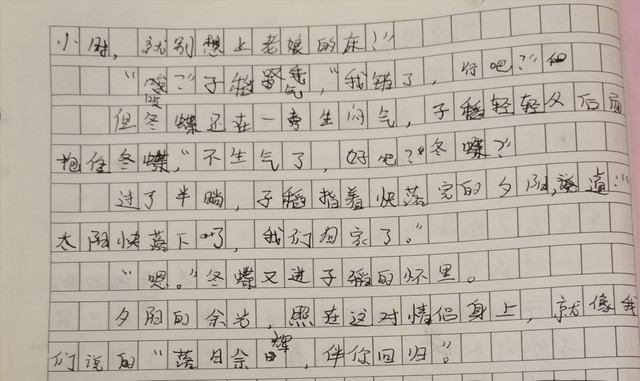 小时，就别想上老娘的床？”
“唉？”子稻叹气，“我错了，行吧？”
但冬蝶还在一旁生闷气，子稻轻轻从后面
抱住冬蝶，“不生气了，好吧？冬蝶？”
过了半晌，子稻指着快落完的夕阳，说道：“
太阳快落下了，我们回家了。”
“嗯。”冬蝶又进子稻的怀里。
夕阳的余光，照在这对情侣身上，就像我
们说的“落日余辉，伴你回归”。